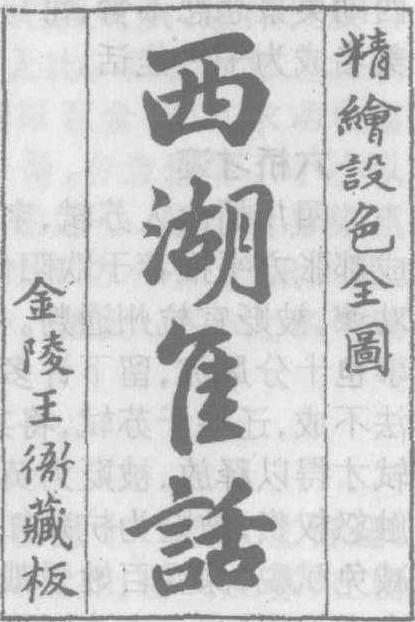 精繪設色全圖
西湖佳話
金陵王衙藏板